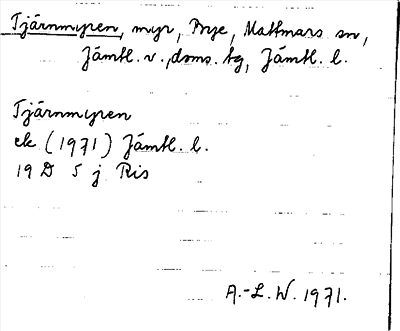 Tjärnmyren, myr, Arye, Mattmars sn,
Jämtl. v., doms. tg, Jämtl. l.
Tjärnmyren
ek (1971) Jämtl. l.
19 D 5 j Ris
A.-L. W. 1971.